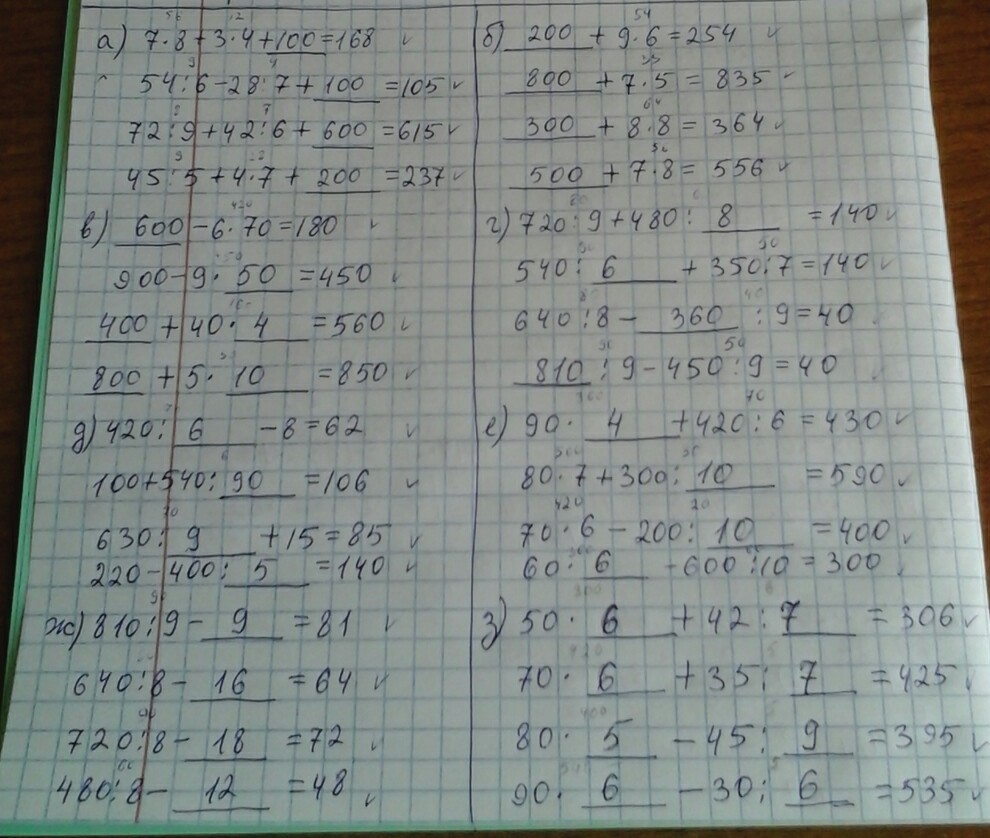 а) 7·8+3·4+100=168
54:6-28:7+100=105
72:9+42:6+600=615
45:5+4·7+200=237
б) 200+9·6=254
800+7·5=835
300+8·8=364
500+7·8=556
в) 600-6·70=180
900-9·50=450
400+40·4=560
800+5·10=850
г) 720:9+480:8=140
540:6+350:7=140
640:8-360:9=40
810:9-450:9=40
д) 420:6-8=62
100+540:90=106
630:9+15=85
220-400:5=140
е) 90·4+420:6=430
80·7+300:10=590
70·6-200:10=400
60·6-600:10=300
ж) 810:9-9=81
640:8-16=64
720:8-18=72
480:8-12=48
з) 50·6+42:7=306
70·6+35:7=425
80·5-45:9=395
90·6-30:6=535